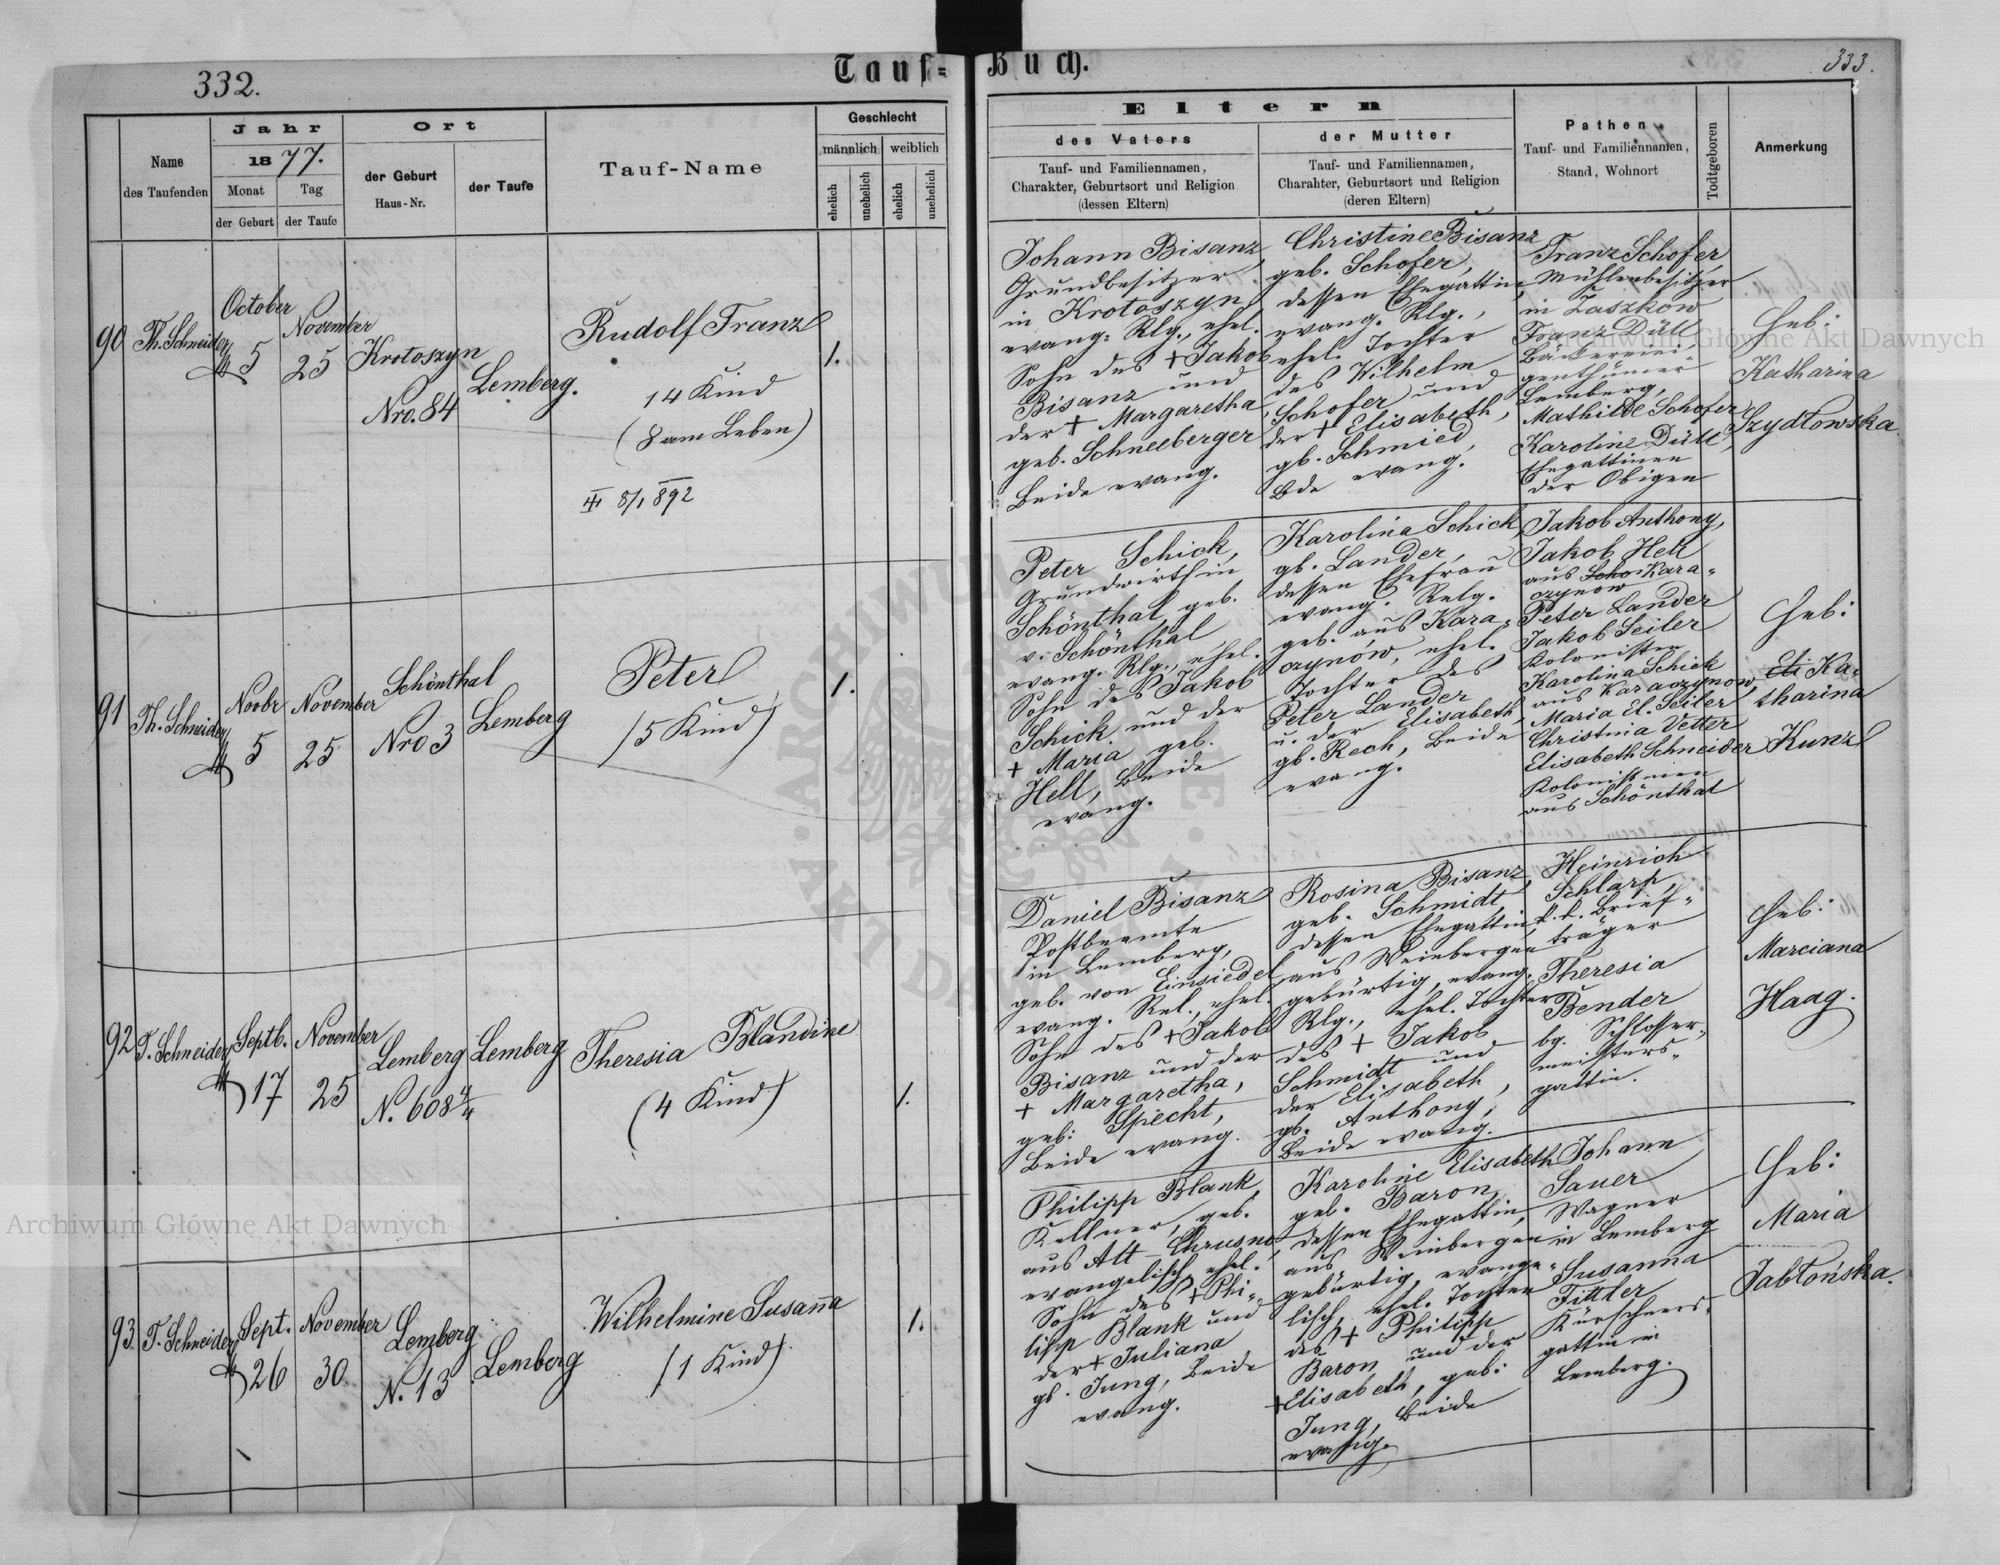 332.
Tauf-
Name
des Taufenden
Jahr
1877.
Monat
Tag
der Geburt
der Taufe
Ort
der Geburt
Haus-Nr.
der Taufe
Tauf-Name
Geschlecht
männlich
weiblich
ehelich
unehelich
ehelich
unehelich
90
Th. Schneider
October
5
November
25
Krotoszyn
Nro. 84
Lemberg.
Rudolf Franz
14 Kind
(8 am Leben)
III 8/1 892
1.
91
Th. Schneider
Novbr
5
November
25
Schönthal
Nro 3
Lemberg
Peter
/5 Kind/
1.
92
T. Schneider
Septb.
17
November
25
Lemberg
N. 608 4/4
Lemberg
Theresia Blandine
(4 Kind)
1.
93.
T. Schneider
Sept.
26
November
30
Lemberg
N. 13
Lemberg
Wilhelmine Susanna
/1 Kind/
1.
Buch.
333.
Eltern
des Vaters
Tauf- und Familiennamen,
Charakter, Geburtsort und Religion
(dessen Eltern)
der Mutter
Tauf- und Familiennamen,
Charahter, Geburtsort und Religion
(deren Eltern)
Pathen
Tauf- und Familiennamen,
Stand, Wohnort
Todtgeboren
Anmerkung
Johann Bisanz
Grundbesitzer
in Krotoszyn
evang. Rlg., ehel.
Sohn des + Jakob
Bisanz und
der + Margaretha
geb. Schneeberger
Beide evang.
Christine Bisanz
geb. Schofer,
dessen Ehegattin
evang. Rlg.,
ehel. Tochter
des Wilhelm
Schofer und
der + Elisabeth,
gb. Schmied,
Bde evang.
Franz Schofer
Mühlenbesitzer
in Zaszkow
Franz Dütt
Lemberg,
Mathilde Schofer
Karoline Dütt,
Ehegattinen
der Obigen
Heb:
Katharina
Szydłowska
Peter Schick,
Grundwirth in
Schönthal, geb.
v. Schönthal
evang. Rlg., ehel.
Sohn des Jakob
Schick und der
+ Maria geb.
Hell, Beide
evang.
Karolina Schick,
gb. Lander,
dessen Ehefrau
evang. Relg.
geb. aus Kara-
czynów, ehel.
Tochter des
Peter Lander
u. der Elisabeth
gb. Rech, Beide
evang.
Jakob Anthony,
Jakob Hell
aus Scho Kara-
czynow
Peter Lander
Jakob Seiler
Kolonisten
Karolina Schick
aus Karaczynow,
Maria El. Seiler
Christina Vetter
Elisabeth Schneider
Kolonistinen
aus Schönthal
Heb:
Eli Ka-
tharina
Kunz
Daniel Bisanz
Postbeamte
in Lemberg,
geb. von Einsiedel
evang. Rel., ehel.
Sohn des + Jakob
Bisanz und der
+ Margaretha,
geb: Specht,
Beide evang.
Rosina Bisanz,
geb. Schmidt
dessen Ehegattin,
aus Weinbergen
gebürtig, evang.
Rlg., ehel. Tochter
des + Jakob
Schmidt und
der Elisabeth,
gb. Anthony,
Beide evang.
Heinrich
Schlarp,
k. k. Brief-
träger
Theresia
Bender
bg. Schlosser-
meisters-
gattin.
Heb:
Marciana
Haag.
Philipp Blank,
Kellner, geb.
aus Alt-Chrusno
evangelisch, ehel.
Sohn des + Phi-
lipp Blank und
der + Juliana
gb. Jung, Beide
evang.
Karoline Elisabeth
geb. Baron,
dessen Ehegattin,
aus Weinbergen
gebürtig, evange-
lisch, ehel. Tochter
des + Philipp
Baron und der
+ Elisabeth, geb:
Jung, Beide
evang.
Johann
Sauer
Wagner
in Lemberg
Susanna
Tittler
Kürschners-
gattin in
Lemberg.
Heb:
Maria
Jabłońska.
Archiwum Główne Akt Dawnych
Archiwum Główne Akt Dawnych